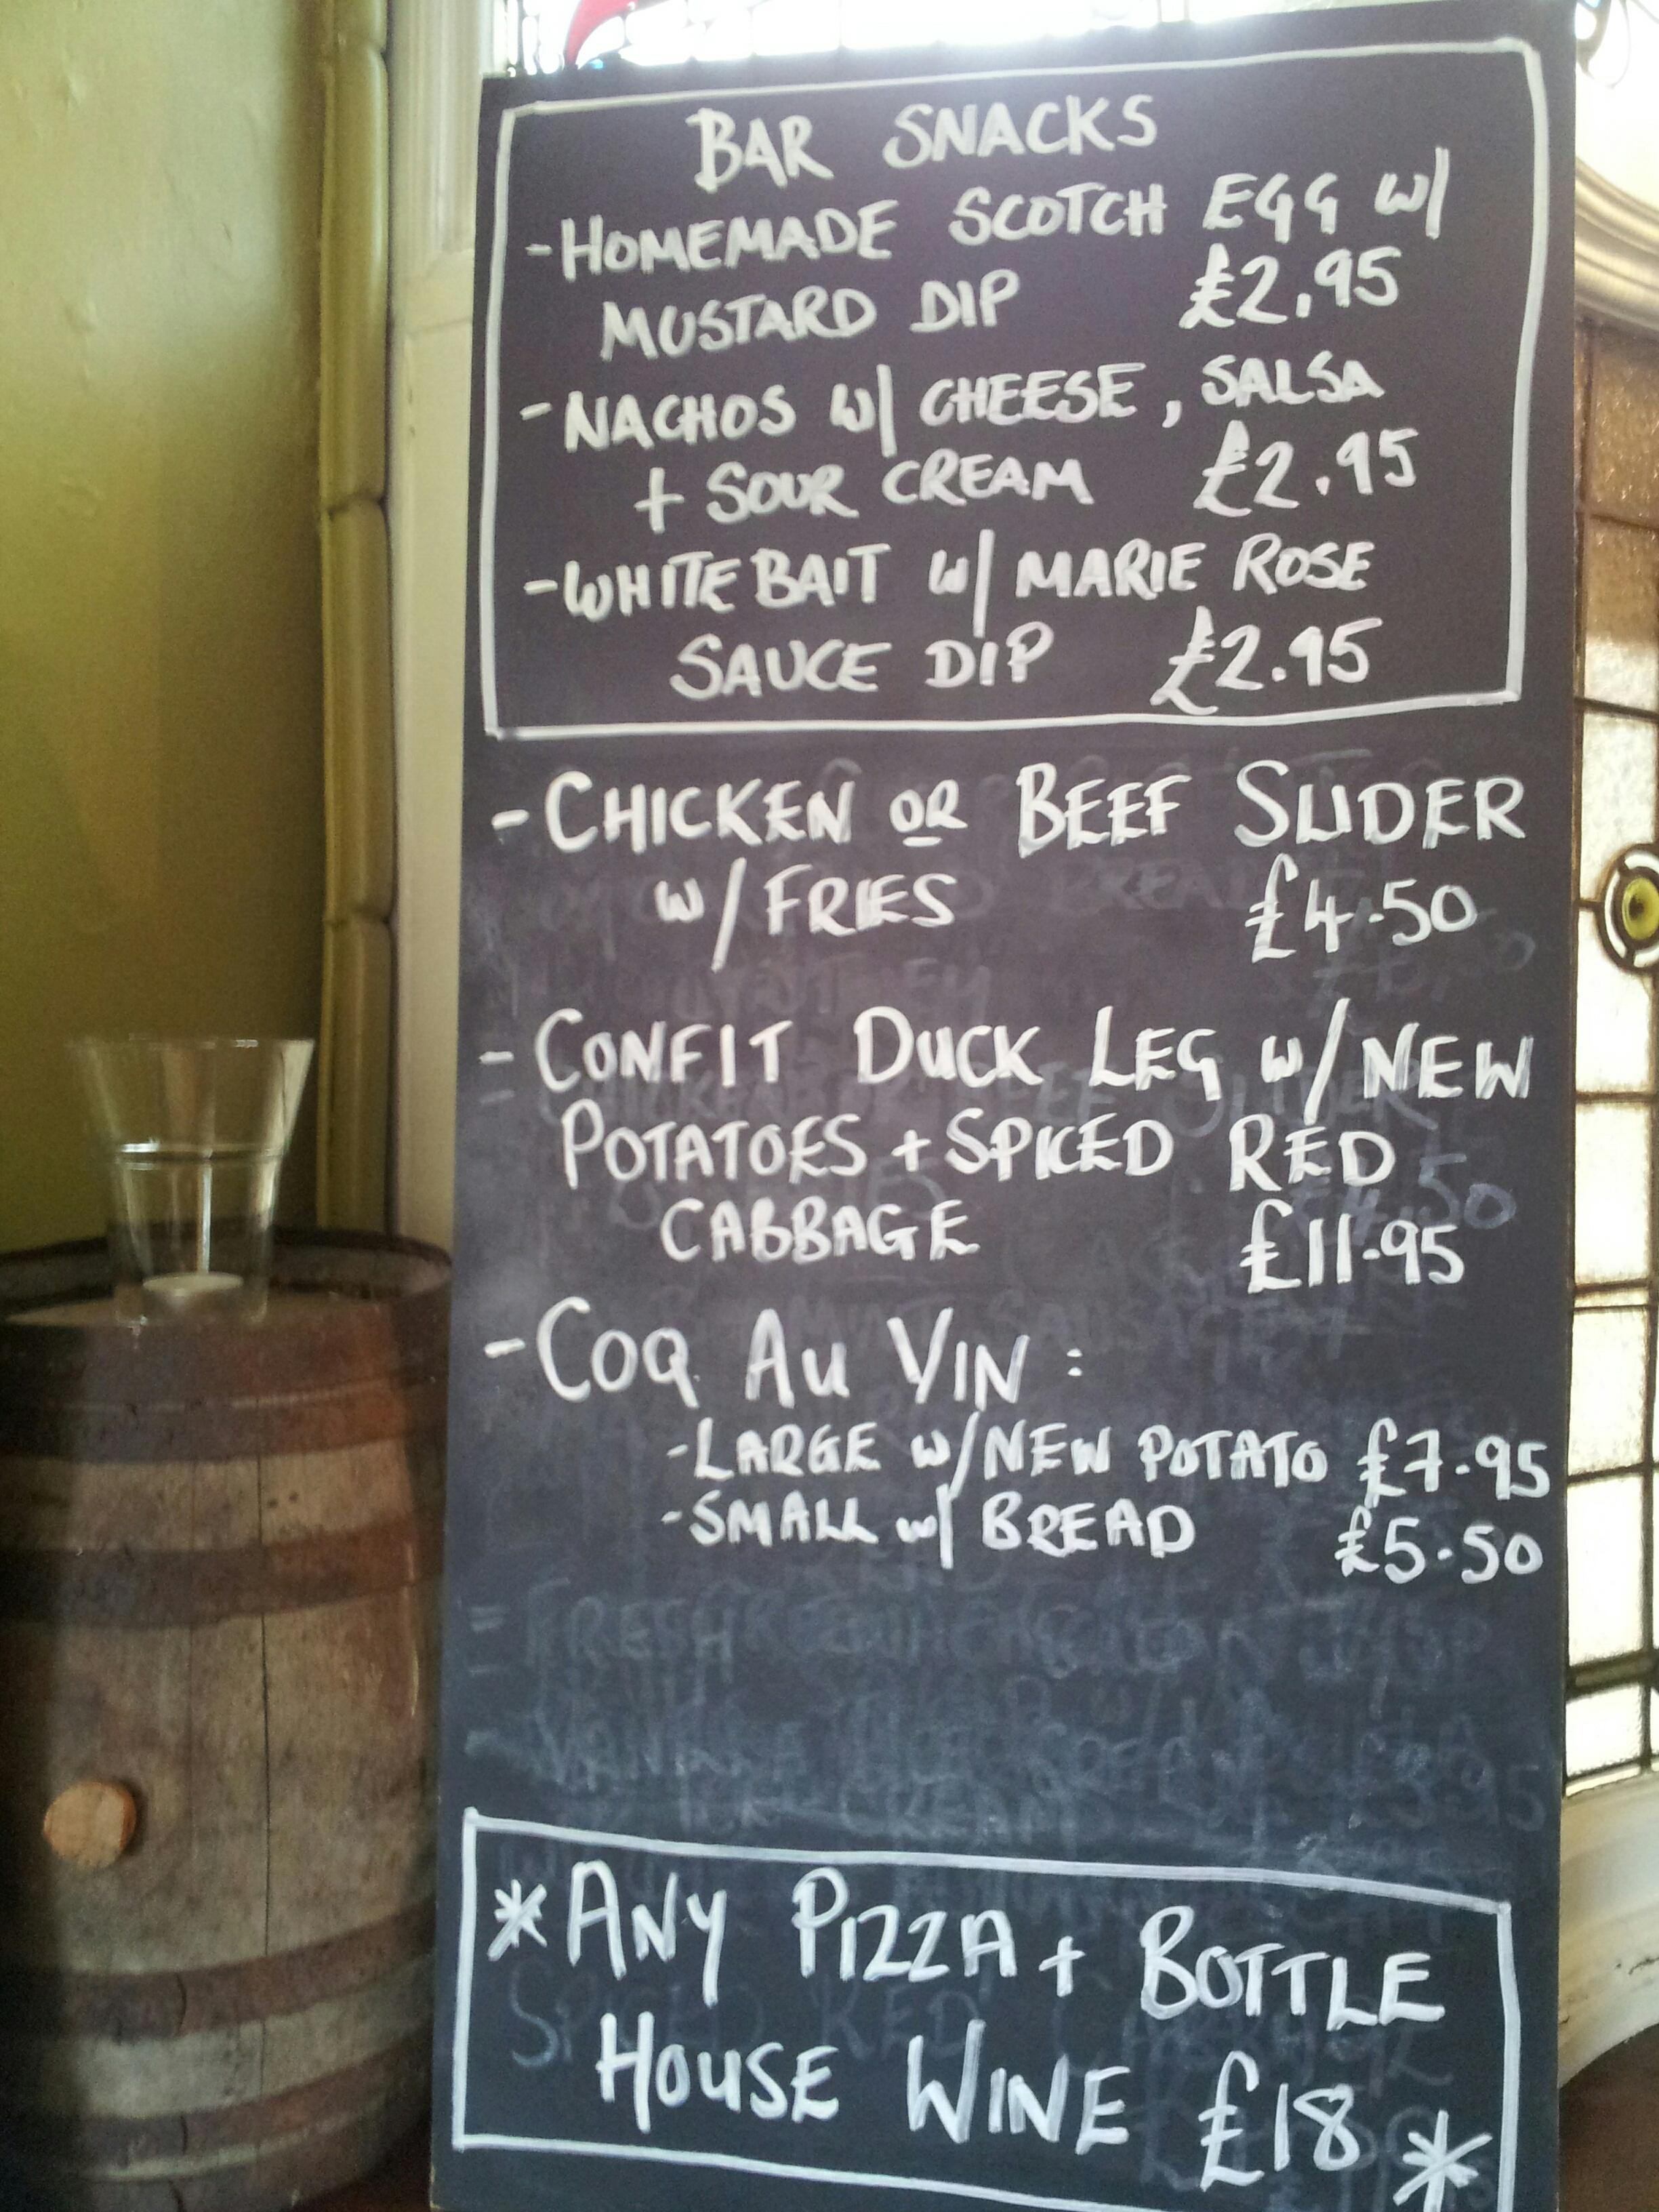 BAR SNACKS
- HOMEMADE SCOTCH EGG w/
MUSTARD DIP £2.95
- NACHOS w/ CHEESE, SALSA
+ SOUR CREAM £2.95
- WHITEBAIT w/ MARIE ROSE
SAUCE DIP £2.95
- CHICKEN OR BEEF SLIDER
w/ FRIES £4.50
- CONFIT DUCK LEG w/ NEW
POTATOES + SPICED RED
CABBAGE £11.95
- COQ AU VIN :
- LARGE w/ NEW POTATO £7.95
- SMALL w/ BREAD £5.50
* ANY PIZZA + BOTTLE
HOUSE WINE £18 *